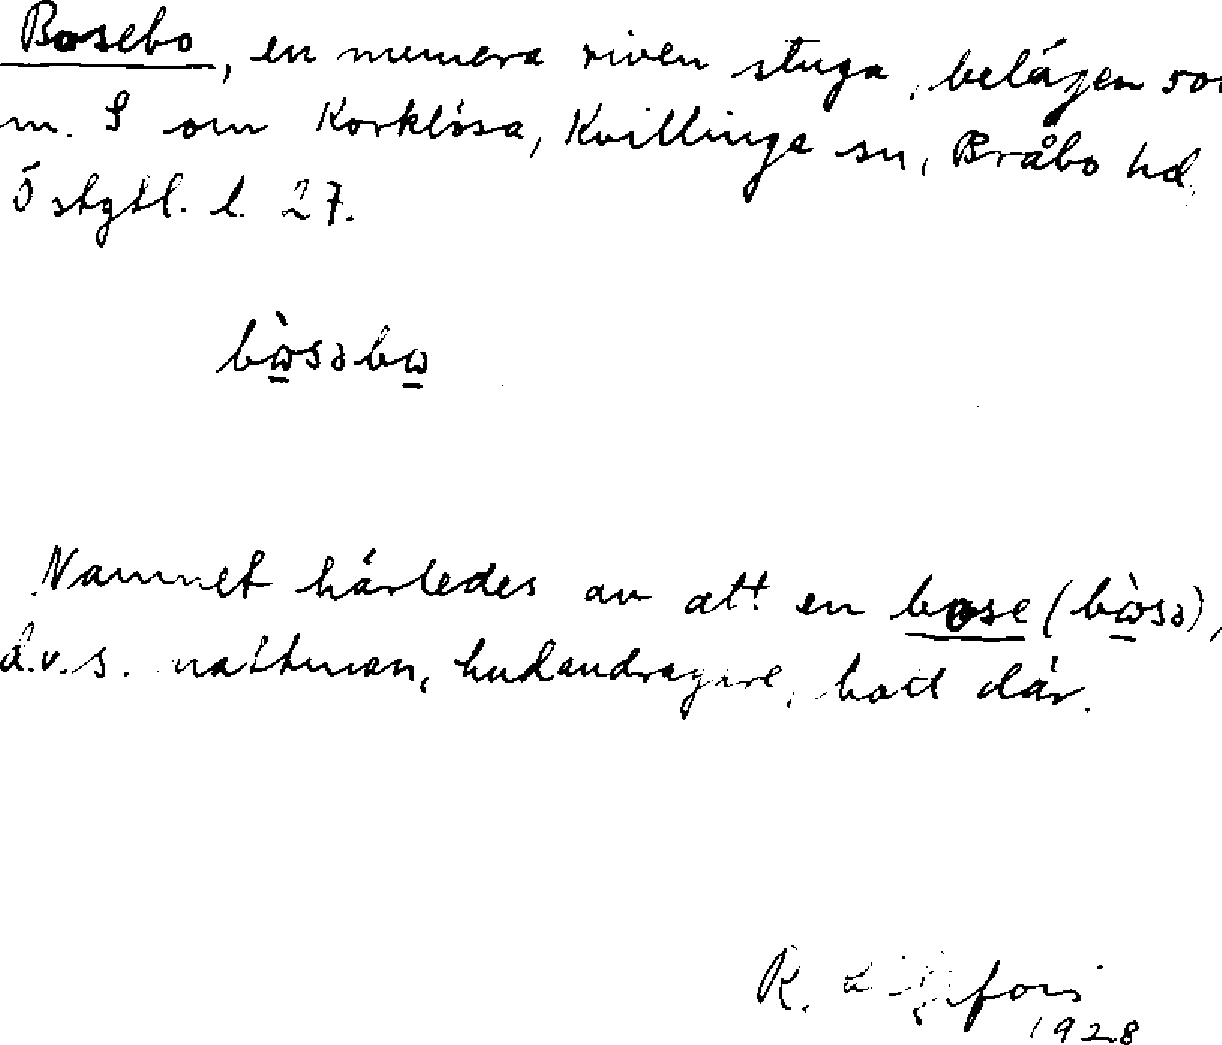 Bosebo, en numera riven stuga, belägen 50
m. S om Korklösa, Kvillinge sn, Bråbo hd.
Östgtl. l. 27.
bὼ̲səbω̲
Namnet härledes av att en bose (bὼ̲sə),
d.v.s. nattman, hudavdragare, bott där.
K.
1928